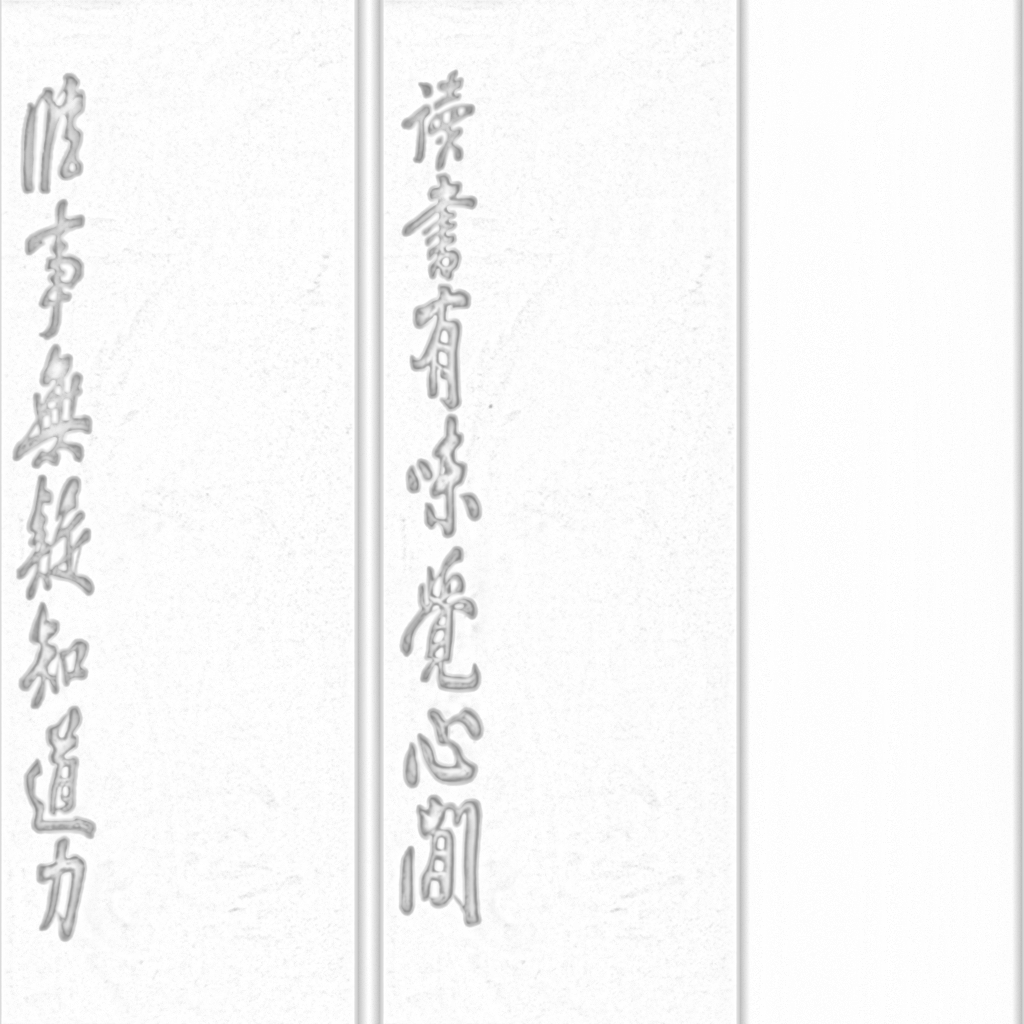 读書有味覺心閒
临事無疑知道力